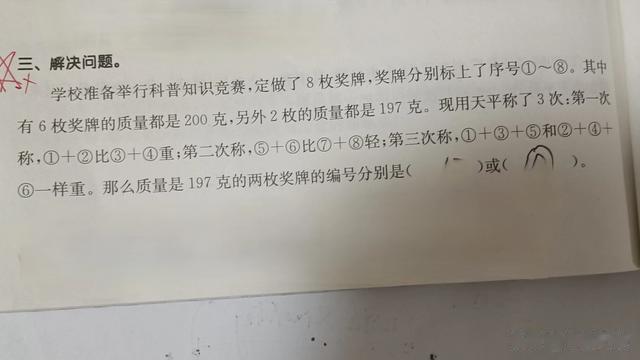 三、解决问题。
学校准备举行科普知识竞赛,定做了8枚奖牌,奖牌分别标上了序号①～⑧。其中
有6枚奖牌的质量都是200克,另外2枚的质量都是197克。现用天平称了3次:第一次
称,①+②比③+④重;第二次称,⑤+⑥比⑦+⑧轻;第三次称,①+③+⑤和②+④+
⑥一样重。那么质量是197克的两枚奖牌的编号分别是( )或( )。